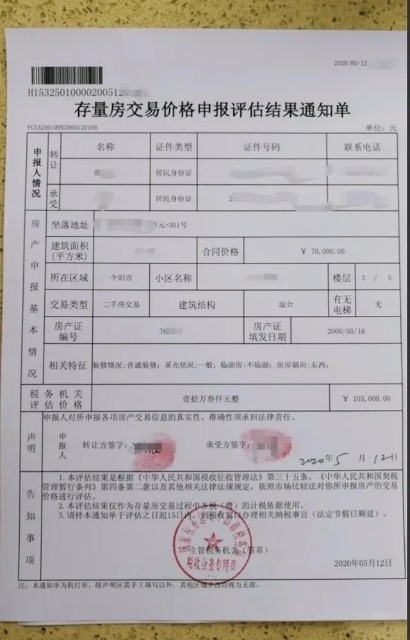 2020/05/12
H1532501000200512
存量房交易价格申报评估结果通知单
FC5325010002005120160
单位：元
申报人情况
名称
证件类型
证件号码
联系电话
转让
居民身份证
承受
居民身份证
房产申报基本情况
坐落地址
元-301号
建筑面积
(平方米)
合同价格
¥ 70,000.00
所在区域
个旧市
小区名称
楼层
2 / 6
交易类型
二手房交易
建筑结构
混合
有无
电梯
无
房产证
编号
76
房产证
填发日期
2000/05/16
相关特征
装修情况:普通装修; 采光状况:一般; 临湖房:不临湖; 房屋朝向:东西;
税务机关
评估价格
壹拾万叁仟元整
¥ 103,000.00
声明
申报人对所申报各项房产交易信息的真实性、准确性须承担法律责任。
申报人
转让方签字:
承受方签字:
2020年5月12日
告知事项
1.本评估结果是根据《中华人民共和国税收征收管理法》第三十五条、《中华人民共和国契
税暂行条例》第四条第二款以及其他相关法律法规规定，依照市场比较法对你所申报房产的交易
价格进行评估。
2.本评估结果仅作为存量房交易过程中各税（费）的计税依据使用。
3.请持本通知单于评估之日起15日内，到税收窗口办理相关纳税事宜（法定节假日顺延）。
主管税务机关（签章）
税收业务专用章
2020年05月12日
注：本通知单为机打单，除声明区需手工填写以外，其他区域手工均视为无效。